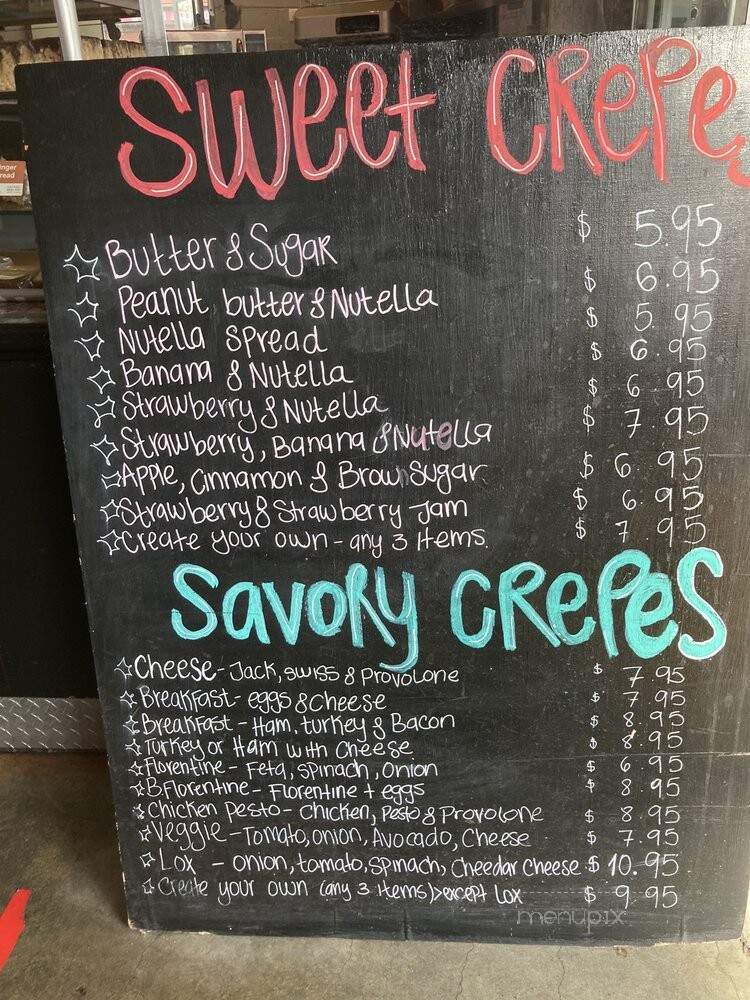 Sweet Crepe
Butter & Sugar $ 5.95
Peanut butter & Nutella $ 6.95
Nutella Spread $ 5.95
Banana & Nutella $ 6.95
Strawberry & Nutella $ 6.95
Strawberry, Banana & Nutella $ 7.95
Apple, Cinnamon & Brown Sugar $ 6.95
Strawberry & Strawberry Jam $ 6.95
Create your own - any 3 Items. $ 7.95
Savory Crepes
Cheese - Jack, swiss & Provolone $ 7.95
Breakfast - eggs & Cheese $ 7.95
Breakfast - Ham, turkey & Bacon $ 8.95
Turkey or Ham with Cheese $ 8.95
Florentine - Feta, spinach, Onion $ 6.95
B.Florentine - Florentine + eggs $ 8.95
Chicken Pesto - Chicken, Pesto & Provolone $ 8.95
Veggie - Tomato, onion, Avocado, Cheese $ 7.95
Lox - onion, tomato, spinach, Cheedar Cheese $ 10.95
Create your own (any 3 Items) > except Lox $ 9.95
menupix